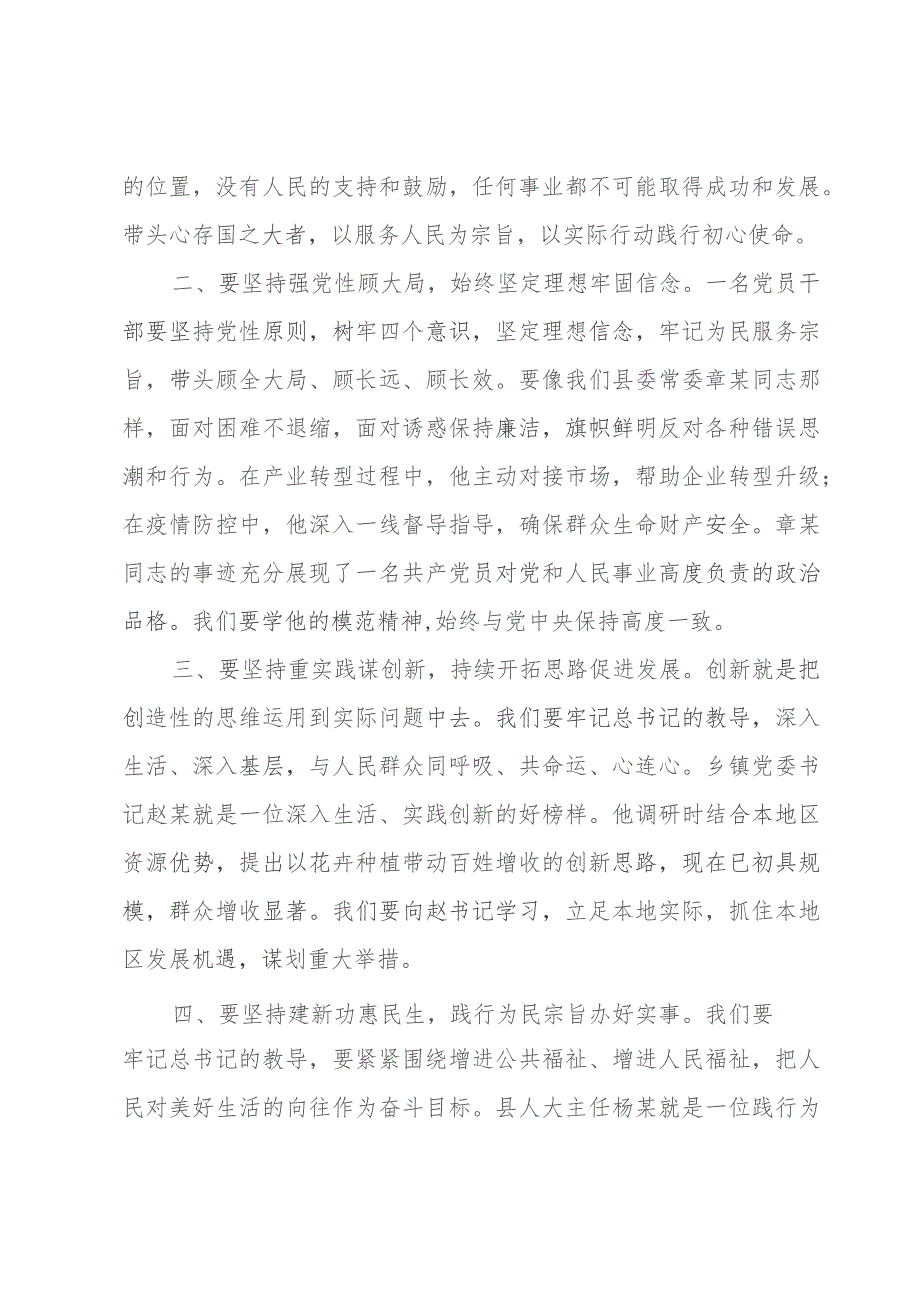 的位置，没有人民的支持和鼓励，任何事业都不可能取得成功和发展。
带头心存国之大者，以服务人民为宗旨，以实际行动践行初心使命。
二、要坚持强党性顾大局，始终坚定理想牢固信念。一名党员干
部要坚持党性原则，树牢四个意识，坚定理想信念，牢记为民服务宗
旨，带头顾全大局、顾长远、顾长效。要像我们县委常委章某同志那
样，面对困难不退缩，面对诱惑保持廉洁，旗帜鲜明反对各种错误思
潮和行为。在产业转型过程中，他主动对接市场，帮助企业转型升级；
在疫情防控中，他深入一线督导指导，确保群众生命财产安全。章某
同志的事迹充分展现了一名共产党员对党和人民事业高度负责的政治
品格。我们要学他的模范精神,始终与党中央保持高度一致。
三、要坚持重实践谋创新，持续开拓思路促进发展。创新就是把
创造性的思维运用到实际问题中去。我们要牢记总书记的教导，深入
生活、深入基层，与人民群众同呼吸、共命运、心连心。乡镇党委书
记赵某就是一位深入生活、实践创新的好榜样。他调研时结合本地区
资源优势，提出以花卉种植带动百姓增收的创新思路，现在已初具规
模，群众增收显著。我们要向赵书记学习，立足本地实际，抓住本地
区发展机遇，谋划重大举措。
四、要坚持建新功惠民生，践行为民宗旨办好实事。我们要
牢记总书记的教导，要紧紧围绕增进公共福祉、增进人民福祉，把人
民对美好生活的向往作为奋斗目标。县人大主任杨某就是一位践行为